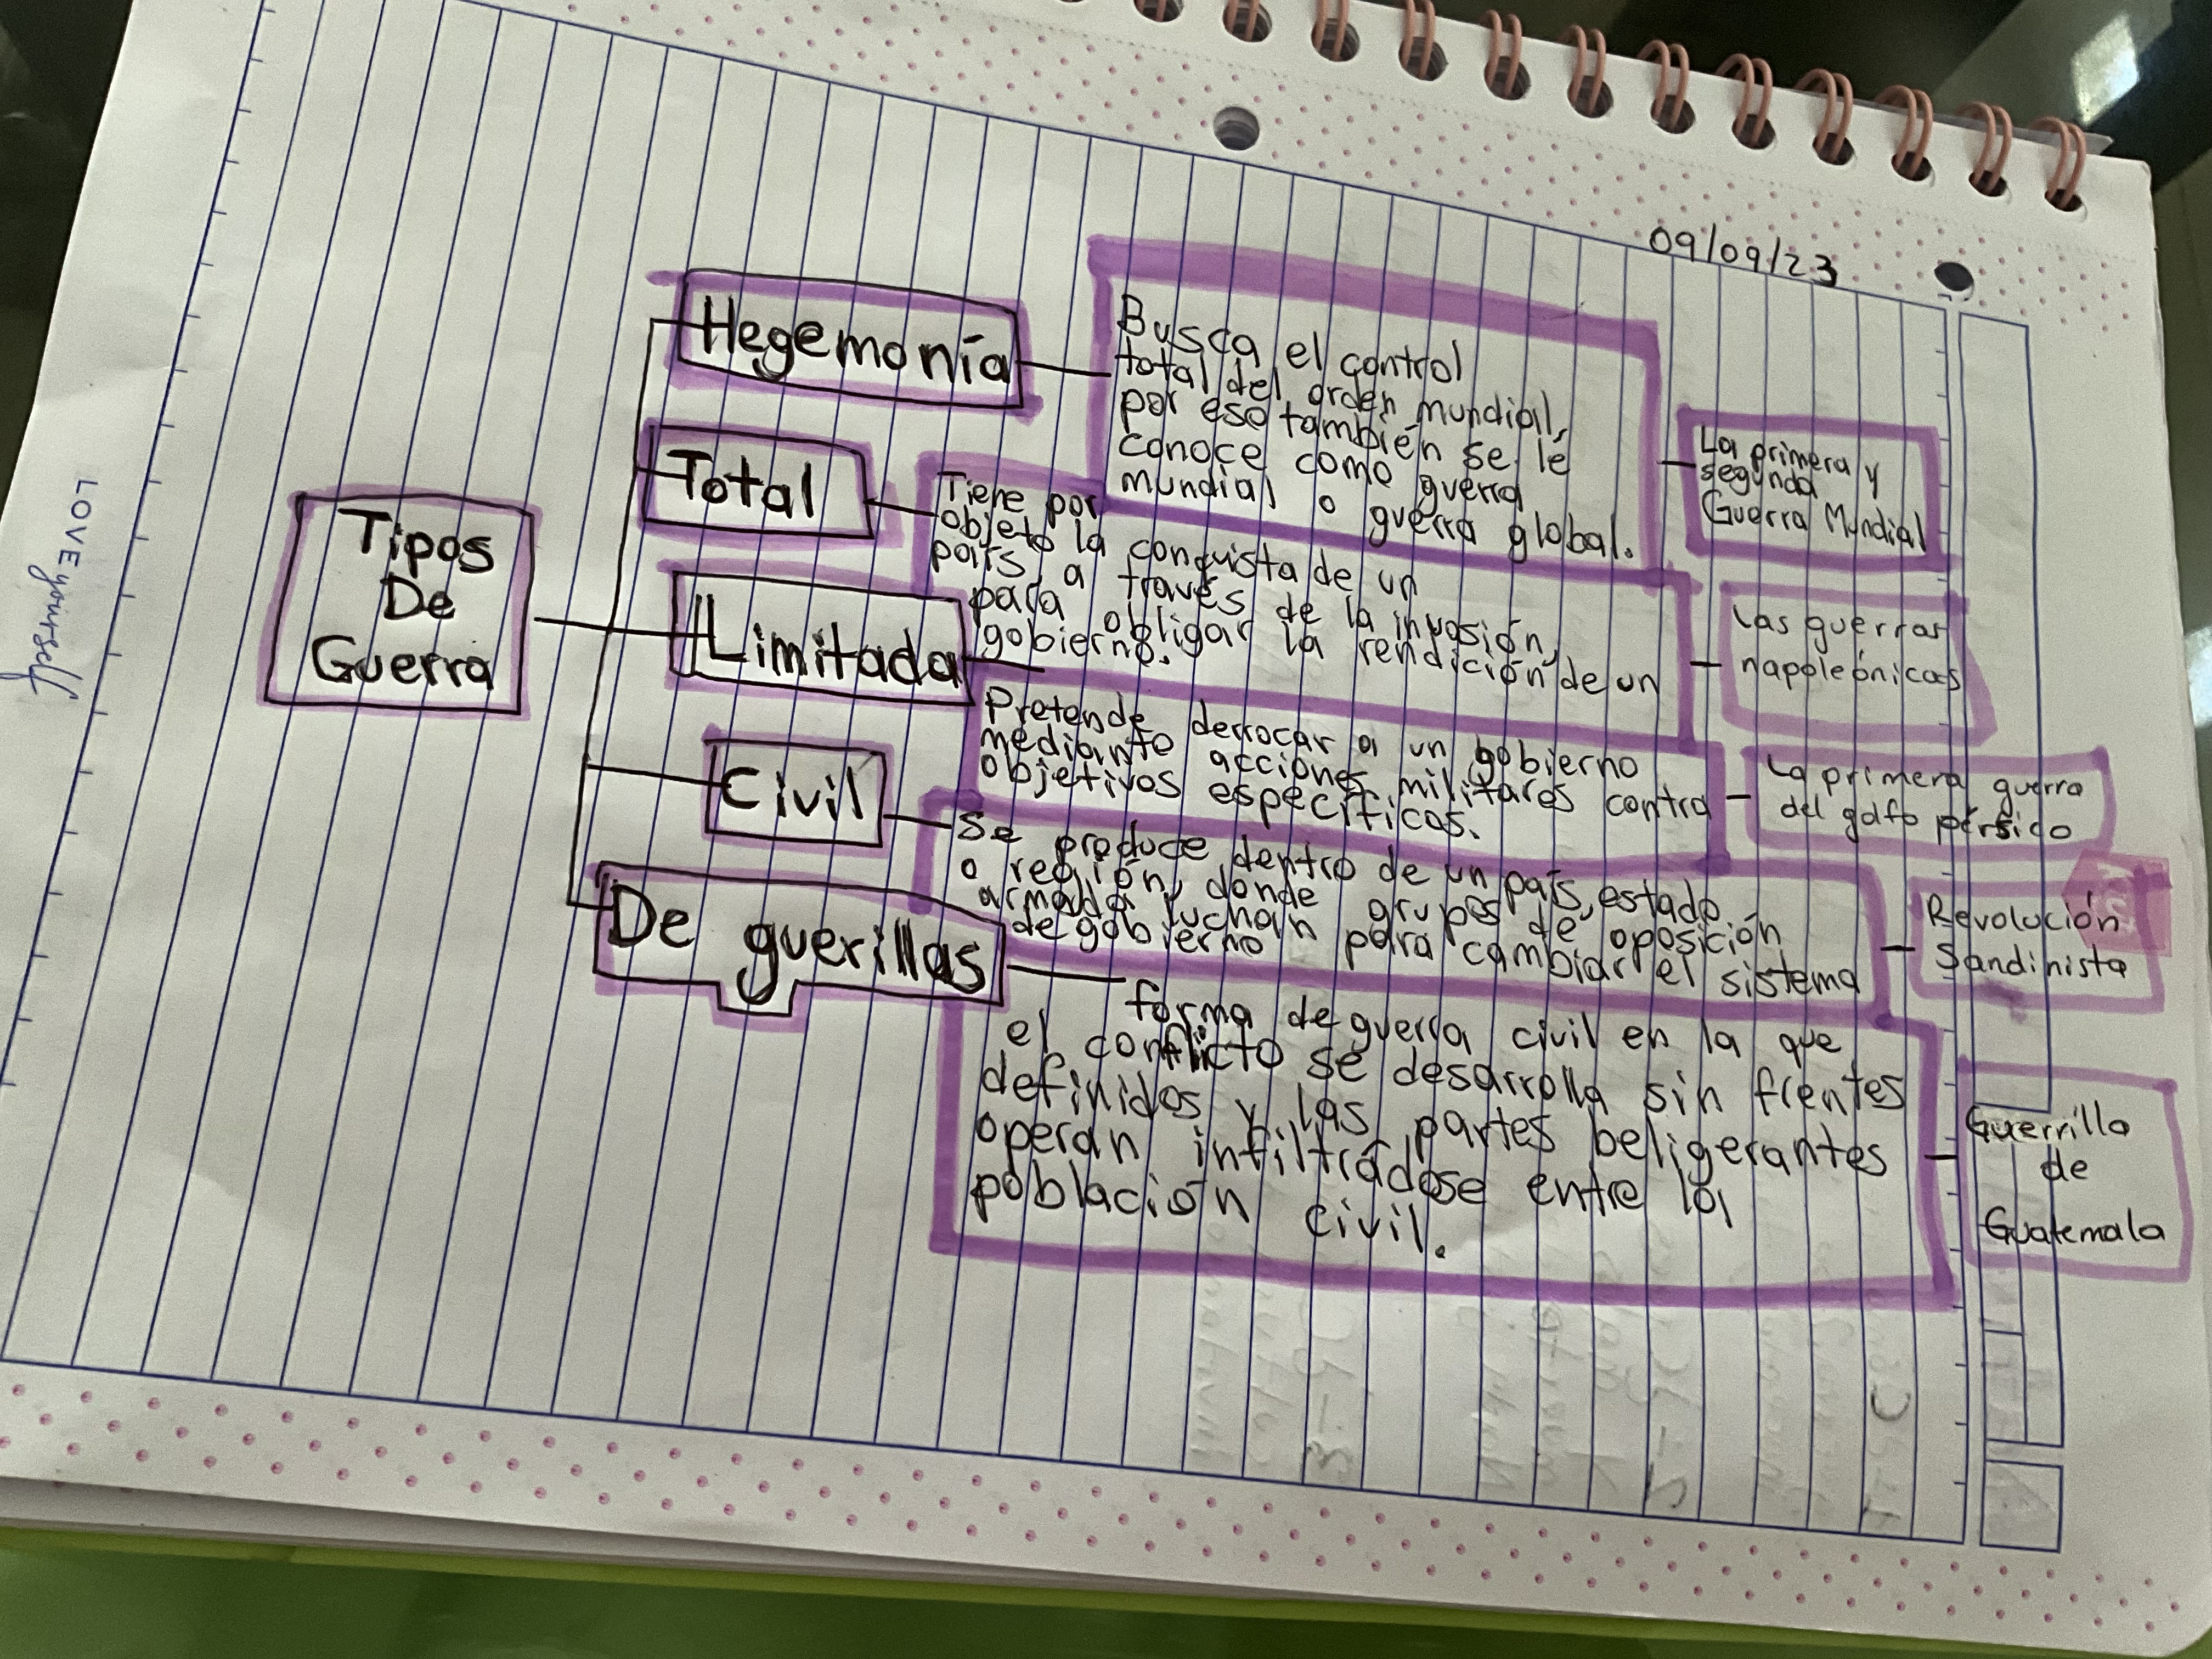 09/09/23
Tipos
De
Guerra
Hegemonía
Busca el control
total del orden mundial,
por eso también se lé
conoce como guerra
mundial o guerra global.
La primera y
segunda
Guerra Mundial
Total
Tiene por
objeto la conquista de un
país, a través de la invasión,
para obligar la rendición de un
gobierno.
Las guerras
napoleónicas
Limitada
Pretende derrocar a un gobierno
mediante acciones militares contra
objetivos específicos.
La primera guerra
del golfo pérsico
Civil
Se produce dentro de un país, estado
o región, donde grupos de oposición
armada luchan para cambiar el sistema
de gobierno
Revolución
Sandinista
De guerillas
forma de guerra civil en la que
el conflicto se desarrolla sin frentes
definidos y las partes beligerantes
operan infiltrádose entre la
población civil.
Guerrilla
de
Guatemala
LOVE yourself